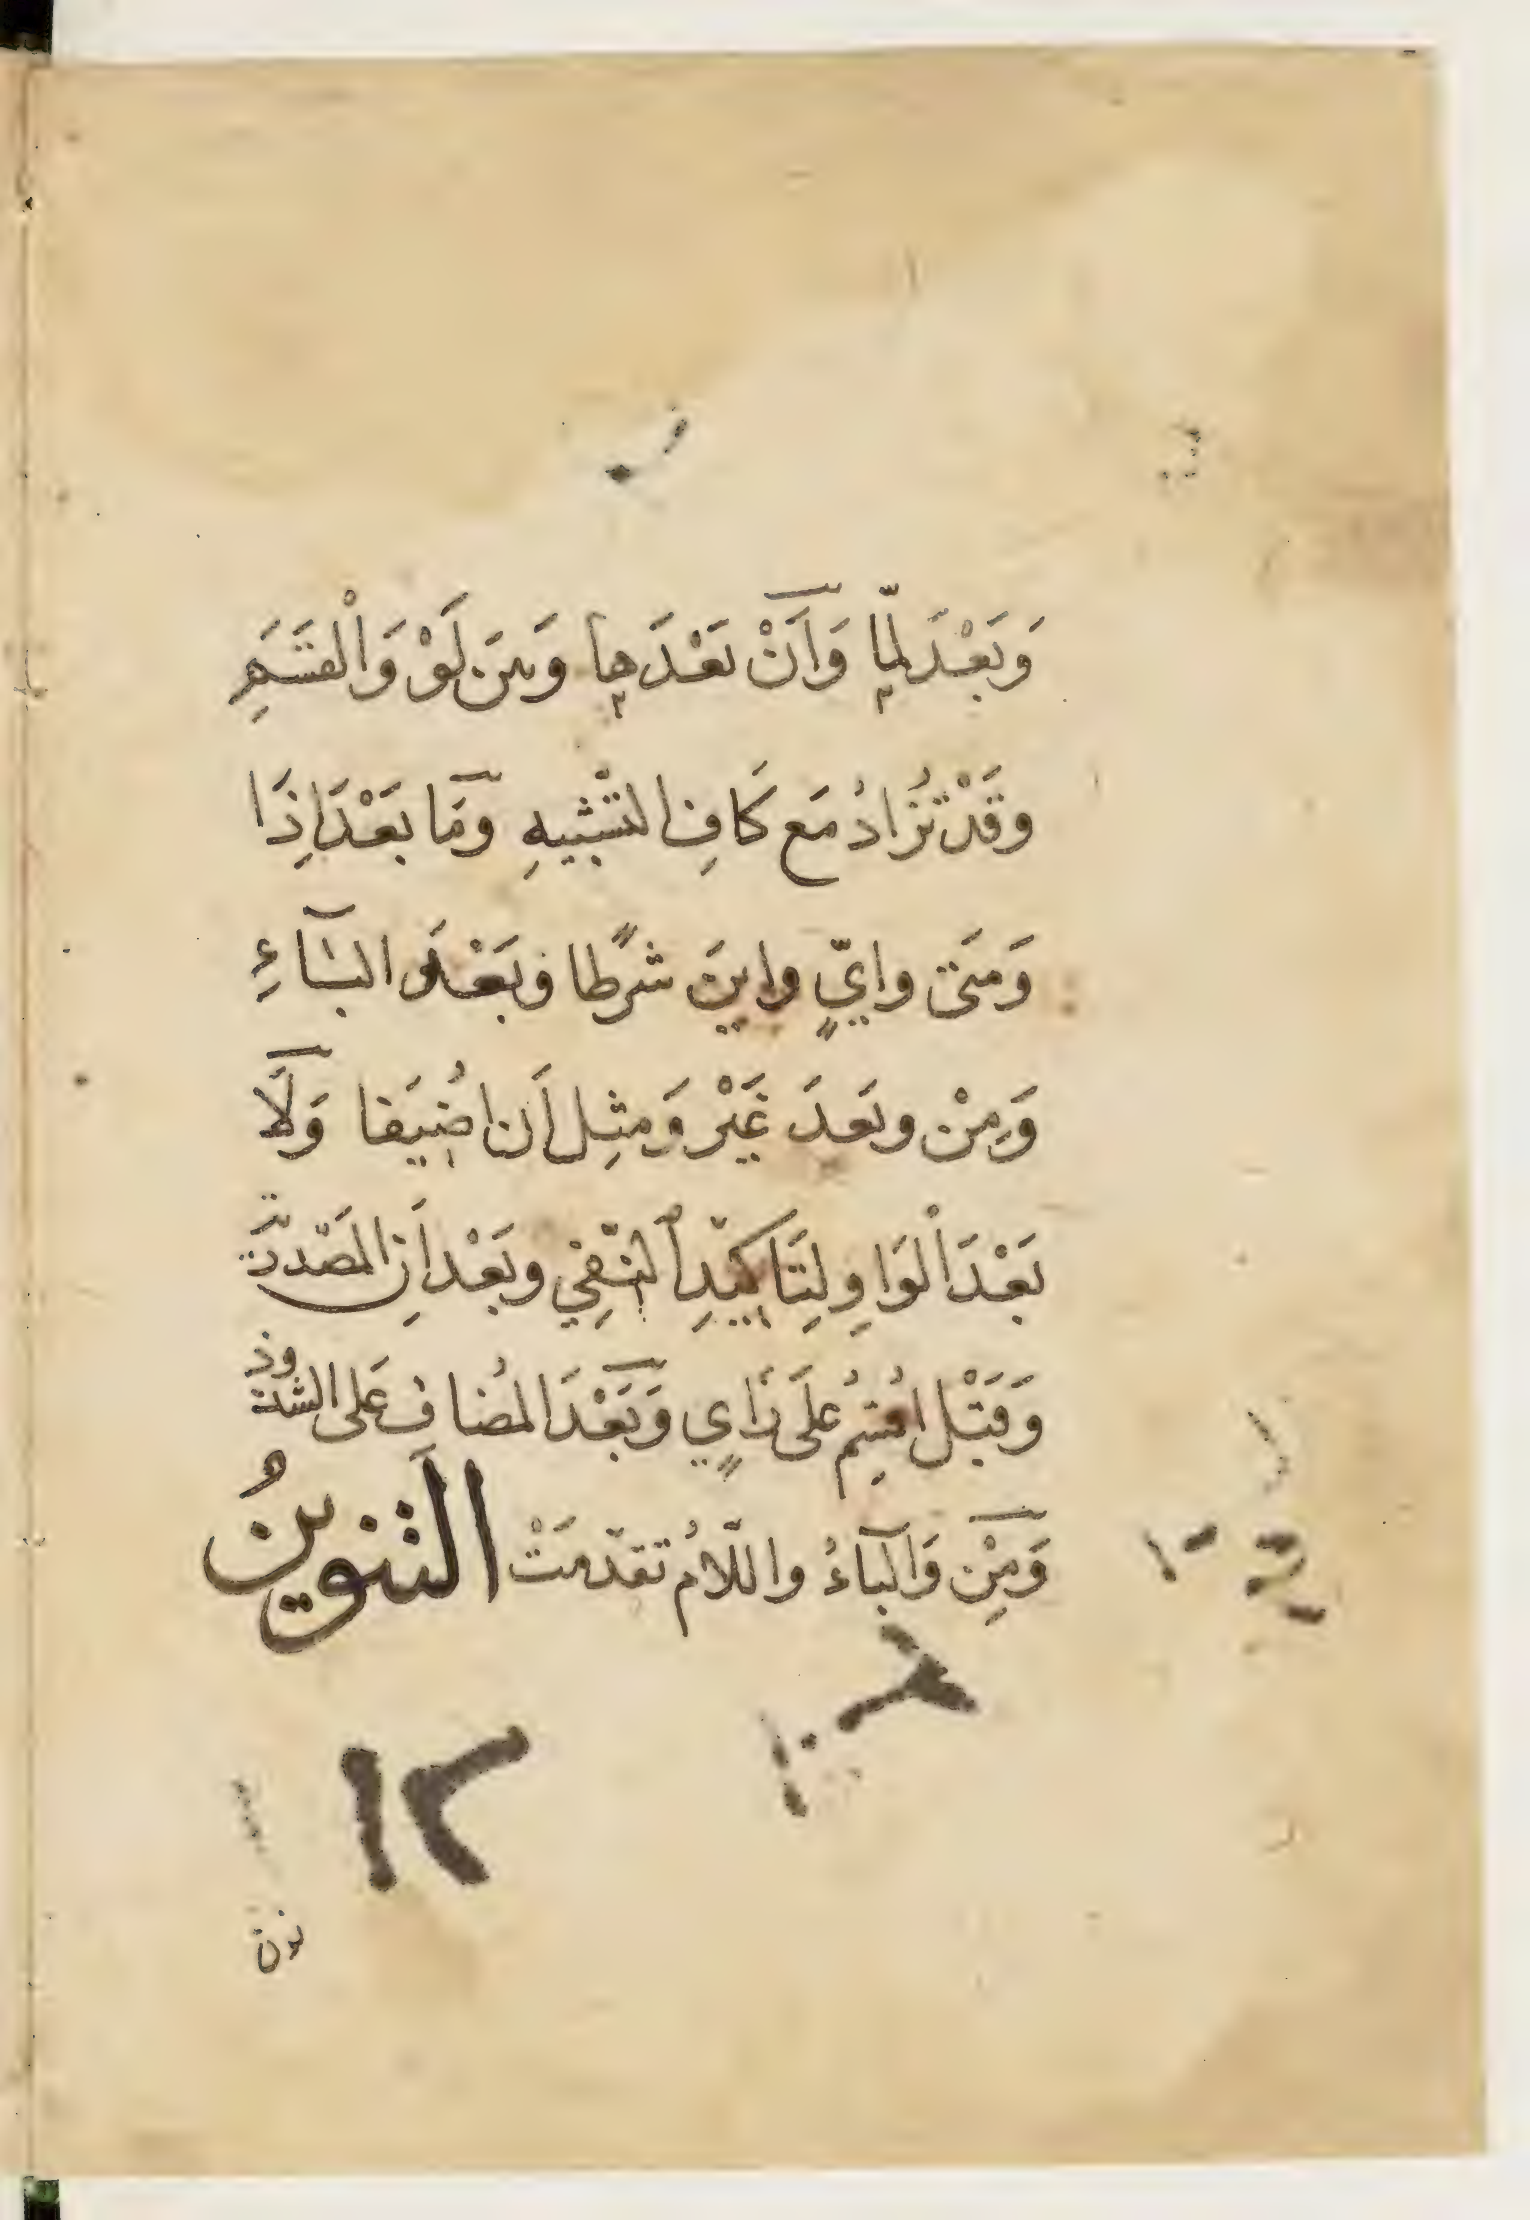 وَبَعْدَ لمّا وَاَنْ بَعْدَها وَبينَ لَوْ وَالْقَسَمِ
وقَدْ تُزَادُ مَع كَافِ التّشْبيهِ وَمَا بَعْدَ اِذَا
وَمَتَى وايٍّ واينَ شرْطًا وَبَعْدَ البَآءِ
وَمِنْ وبَعدَ غَيْر وَمثِل اَن اضُيَفا وَلَا
بَعْدَ الْوَاوِ لِتَاكيْدِ النّفِي وبَعْد اَنِ المَصْدريّة
وَقَبْل اقُسِمُ عَلَى رَايٍ وَبَعْدَ المُضاف عَلى الشذوذ
وَمِنْ وَالبَاءُ واللّامُ تقدّمَتْ التَنوينُ
١٢
نون